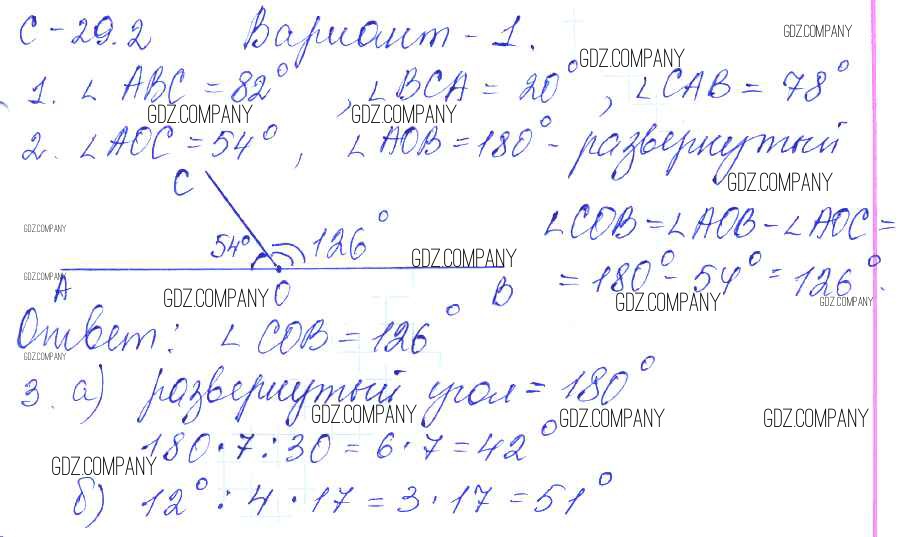 С-29.2 Вариант-1.
GDZ.COMPANY
GDZ.COMPANY
1. ∠ABC = 82°, ∠BCA = 20°, ∠CAB = 78°
GDZ.COMPANY GDZ.COMPANY
2. ∠AOC = 54°, ∠AOB = 180° - развернутый
GDZ.COMPANY
C
∠COB = ∠AOB - ∠AOC =
GDZ.COMPANY
54° 126°
GDZ.COMPANY
= 180° - 54° = 126°.
GDZ.COMPANY
A O B
GDZ.COMPANY GDZ.COMPANY GDZ.COMPANY
Ответ: ∠COB = 126°
GDZ.COMPANY
3. а) развернутый угол = 180°
GDZ.COMPANY GDZ.COMPANY GDZ.COMPANY
180·7:30 = 6·7 = 42°
GDZ.COMPANY
б) 12° : 4 · 17 = 3 · 17 = 51°